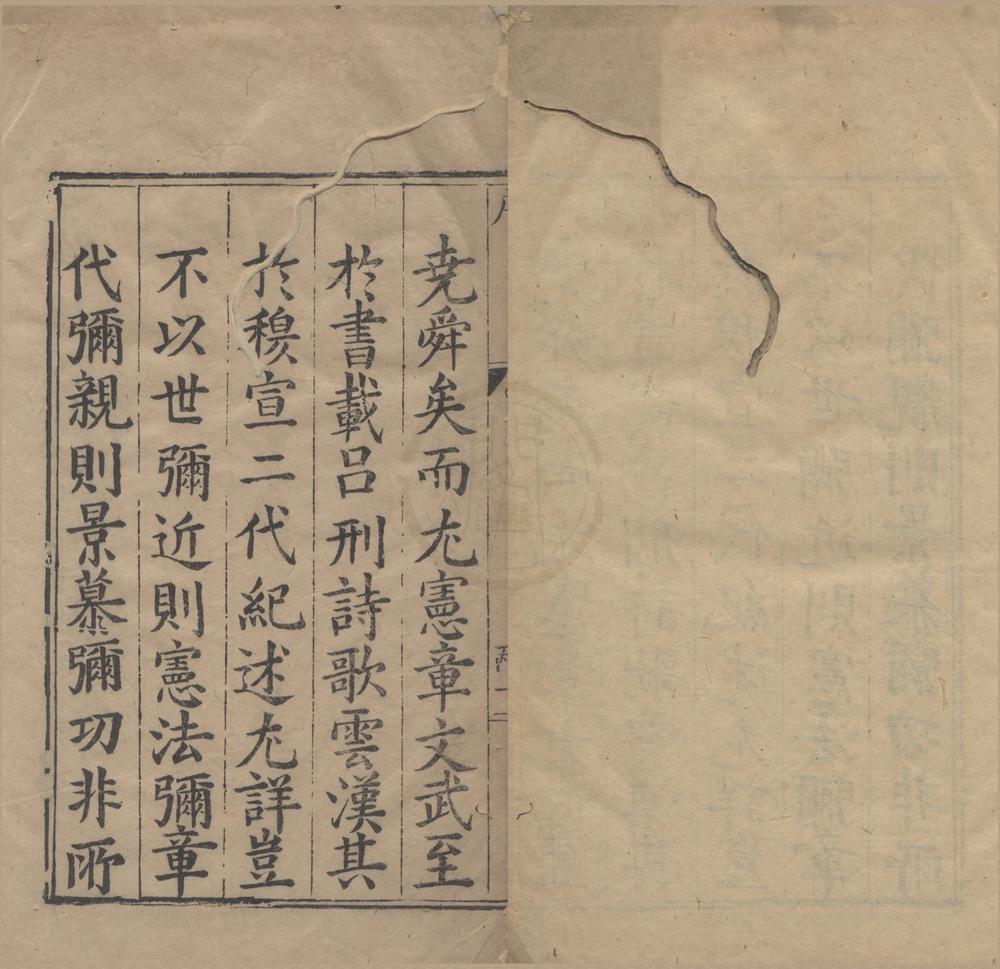 尭舜矣而尤憲章文武至
於書載呂刑詩歌雲漢其
於穆宣二代紀述尤詳豈
不以世彌近則憲法彌章
代彌親則景慕彌切非所